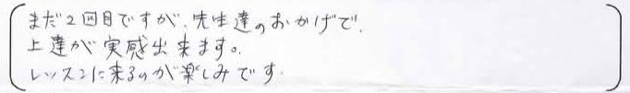 まだ2回目ですが、先生達のおかげで、
上達が実感出来ます。
レッスンに来るのが楽しみです